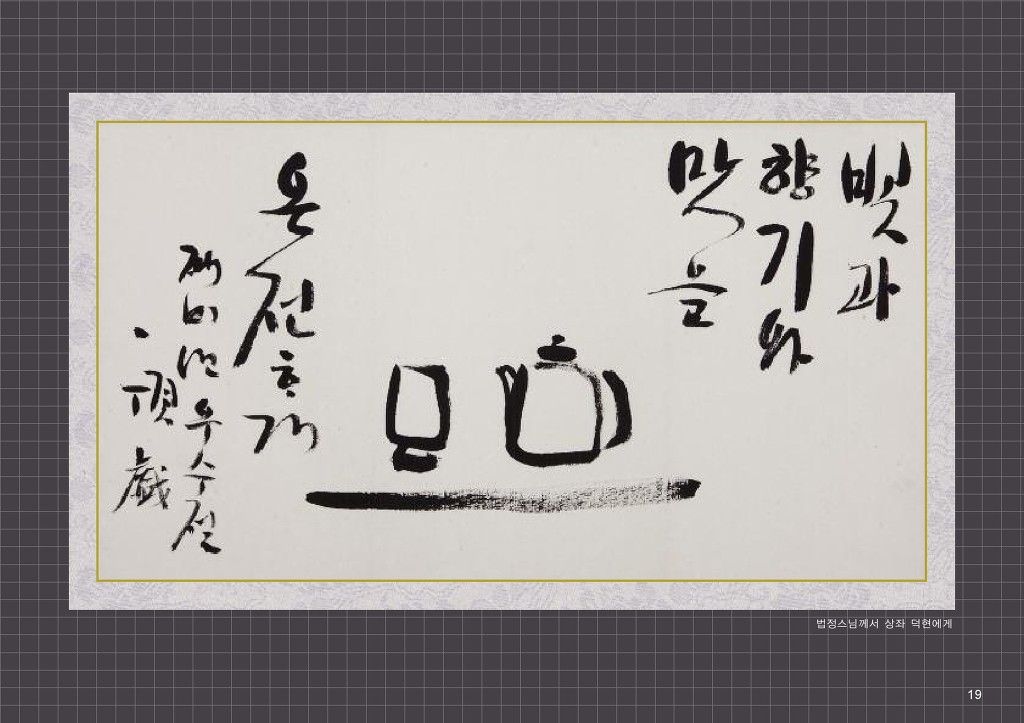 빛과
향기와
맛을
온전하게
우수절
頂 戱
법정스님께서 상좌 덕현에게
19